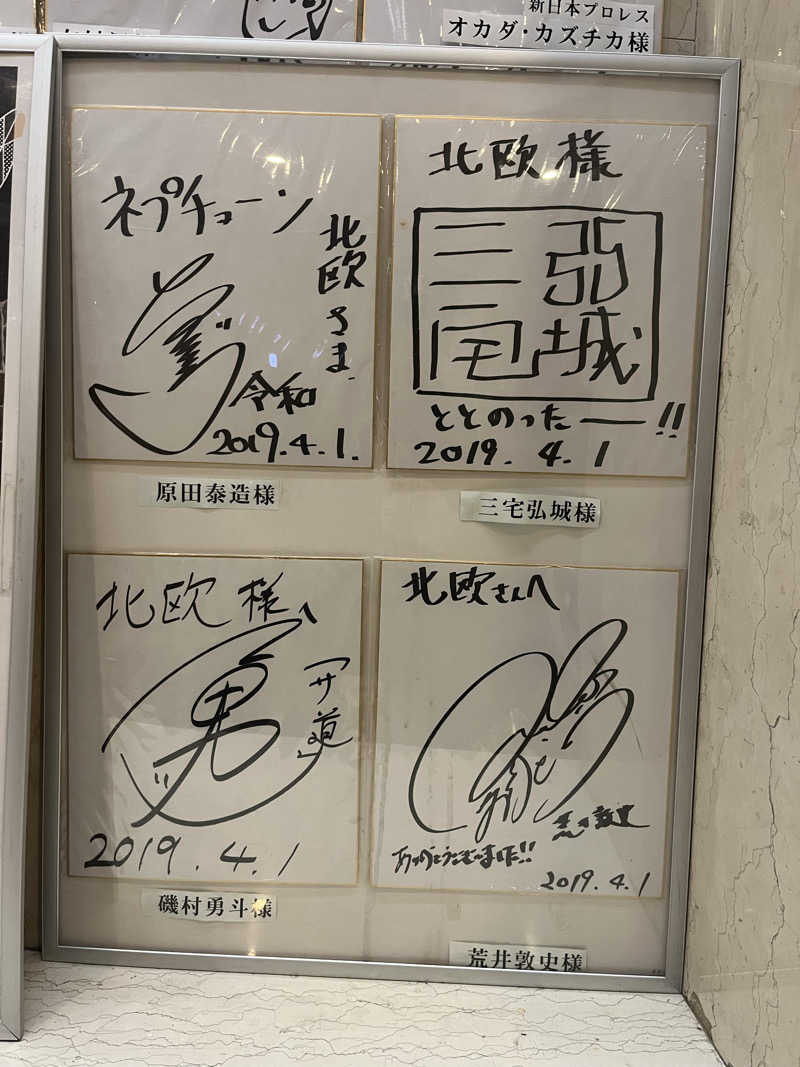 新日本プロレス
オカダ・カズチカ様
ネプチューン
北欧さま
令和
2019.4.1.
原田泰造様
北欧様
三宅
弘城
ととのったー!!
2019. 4. 1
三宅弘城様
北欧様へ
勇
「サ道」
2019. 4. 1
磯村勇斗様
北欧さんへ
ありがとうございました!!
2019. 4. 1
荒井敦史様